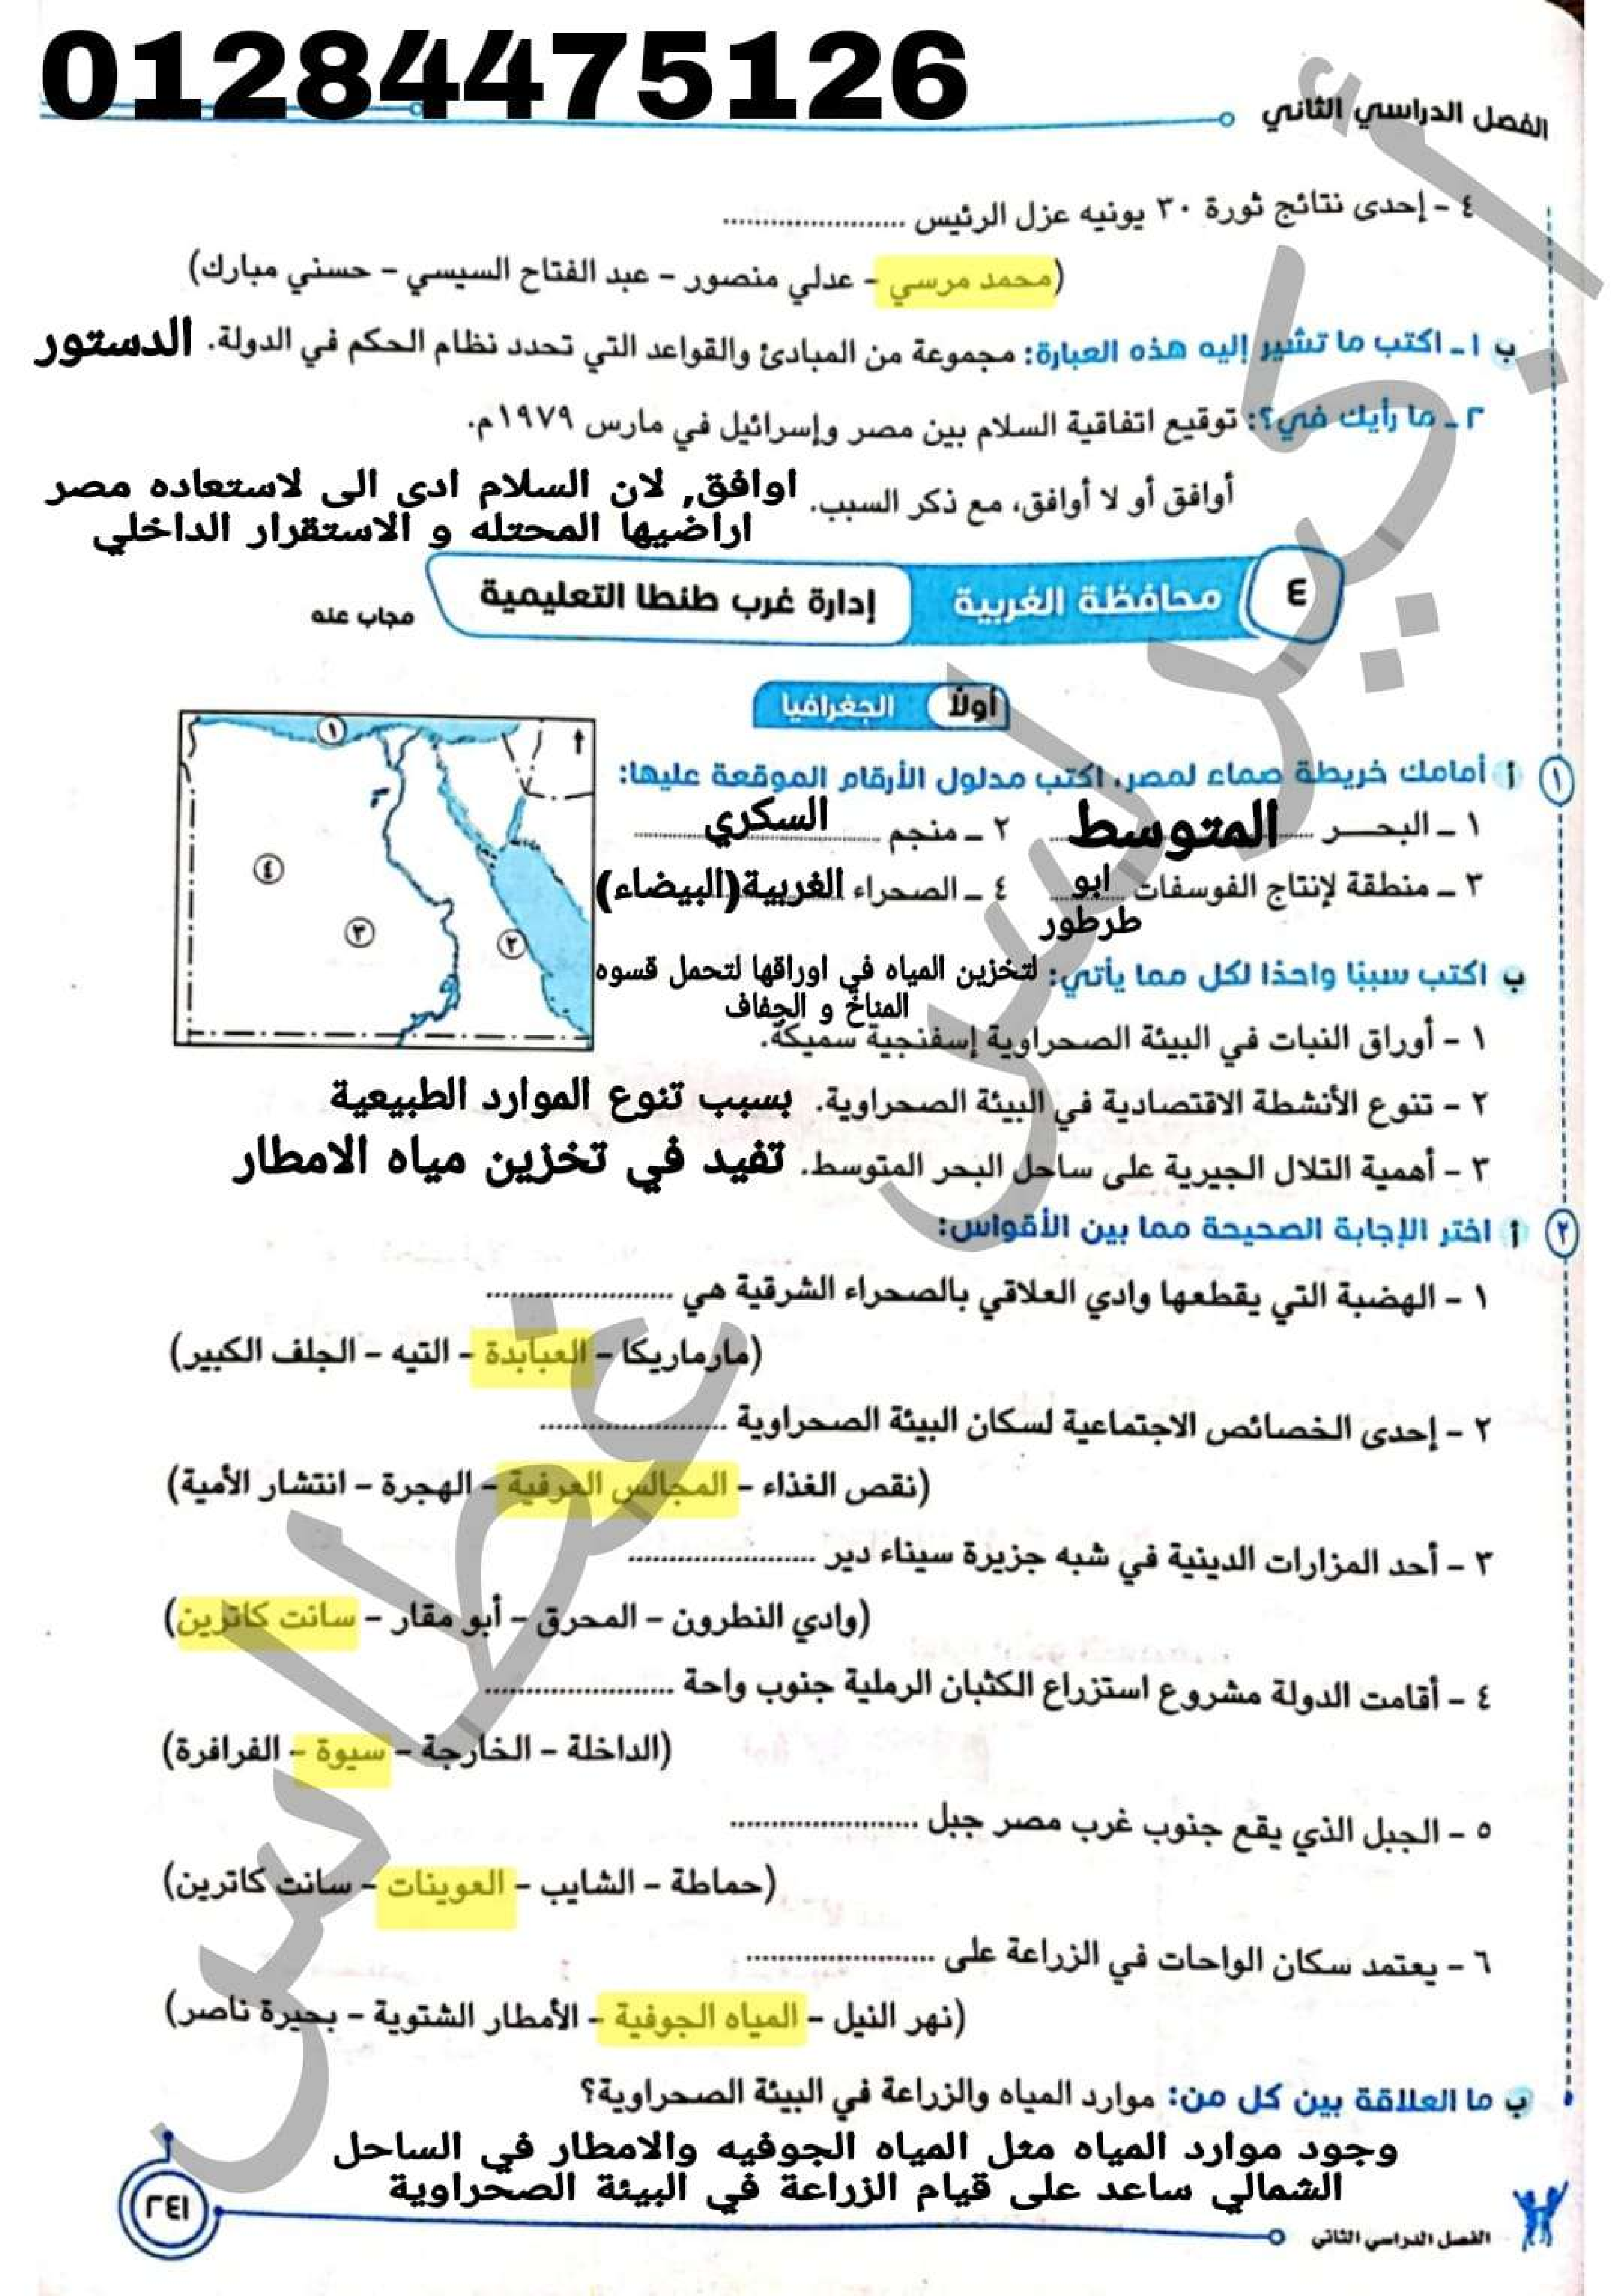 01284475126
الفصل الدراسي الثاني
٤ - إحدى نتائج ثورة ٣٠ يونيه عزل الرئيس ......................
(محمد مرسي - عدلي منصور - عبد الفتاح السيسي - حسني مبارك)
ب ١ - اكتب ما تشير إليه هذه العبارة: مجموعة من المبادئ والقواعد التي تحدد نظام الحكم في الدولة. الدستور
٢ - ما رأيك في؟: توقيع اتفاقية السلام بين مصر وإسرائيل في مارس ١٩٧٩م.
أوافق أو لا أوافق، مع ذكر السبب. اوافق, لان السلام ادى الى لاستعاده مصر
اراضيها المحتله و الاستقرار الداخلي
٤ محافظة الغربية إدارة غرب طنطا التعليمية مجاب عنه
أولًا الجغرافيا
١ أ أمامك خريطة صماء لمصر، اكتب مدلول الأرقام الموقعة عليها:
١ ـ البحـــر المتوسط ٢ ـ منجم السكري
٣ ـ منطقة لإنتاج الفوسفات ابو طرطور ٤ ـ الصحراء الغربية(البيضاء)
١
٤
٣
٢
ب اكتب سببًا واحدًا لكل مما يأتي: لتخزين المياه في اوراقها لتحمل قسوه
المناخ و الجفاف
١ - أوراق النبات في البيئة الصحراوية إسفنجية سميكة.
٢ - تنوع الأنشطة الاقتصادية في البيئة الصحراوية. بسبب تنوع الموارد الطبيعية
٣ - أهمية التلال الجيرية على ساحل البحر المتوسط. تفيد في تخزين مياه الامطار
٢ أ اختر الإجابة الصحيحة مما بين الأقواس:
١ - الهضبة التي يقطعها وادي العلاقي بالصحراء الشرقية هي ......................
(مارماريكا - العبابدة - التيه - الجلف الكبير)
٢ - إحدى الخصائص الاجتماعية لسكان البيئة الصحراوية ......................
(نقص الغذاء - المجالس العرفية - الهجرة - انتشار الأمية)
٣ - أحد المزارات الدينية في شبه جزيرة سيناء دير ......................
(وادي النطرون - المحرق - أبو مقار - سانت كاترين)
٤ - أقامت الدولة مشروع استزراع الكثبان الرملية جنوب واحة ......................
(الداخلة - الخارجة - سيوة - الفرافرة)
٥ - الجبل الذي يقع جنوب غرب مصر جبل ......................
(حماطة - الشايب - العوينات - سانت كاترين)
٦ - يعتمد سكان الواحات في الزراعة على ......................
(نهر النيل - المياه الجوفية - الأمطار الشتوية - بحيرة ناصر)
ب ما العلاقة بين كل من: موارد المياه والزراعة في البيئة الصحراوية؟
وجود موارد المياه مثل المياه الجوفيه والامطار في الساحل
الشمالي ساعد على قيام الزراعة في البيئة الصحراوية
الفصل الدراسي الثاني
٢٤١
أ. كيرلس غطاس